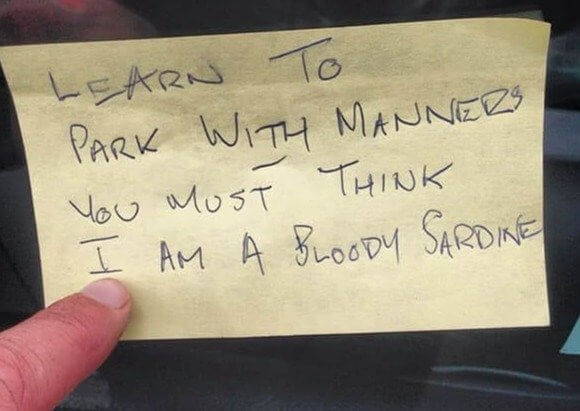 LEARN TO
PARK WITH MANNERS
YOU MUST THINK
I AM A BLOODY SARDINE